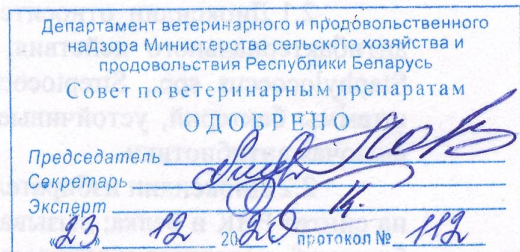 Департамент ветеринарного и продовольственного
надзора Министерства сельского хозяйства и
продовольствия Республики Беларусь
Совет по ветеринарным препаратам
ОДОБРЕНО
Председатель
Секретарь
Эксперт
«23» 12 2020 протокол № 112